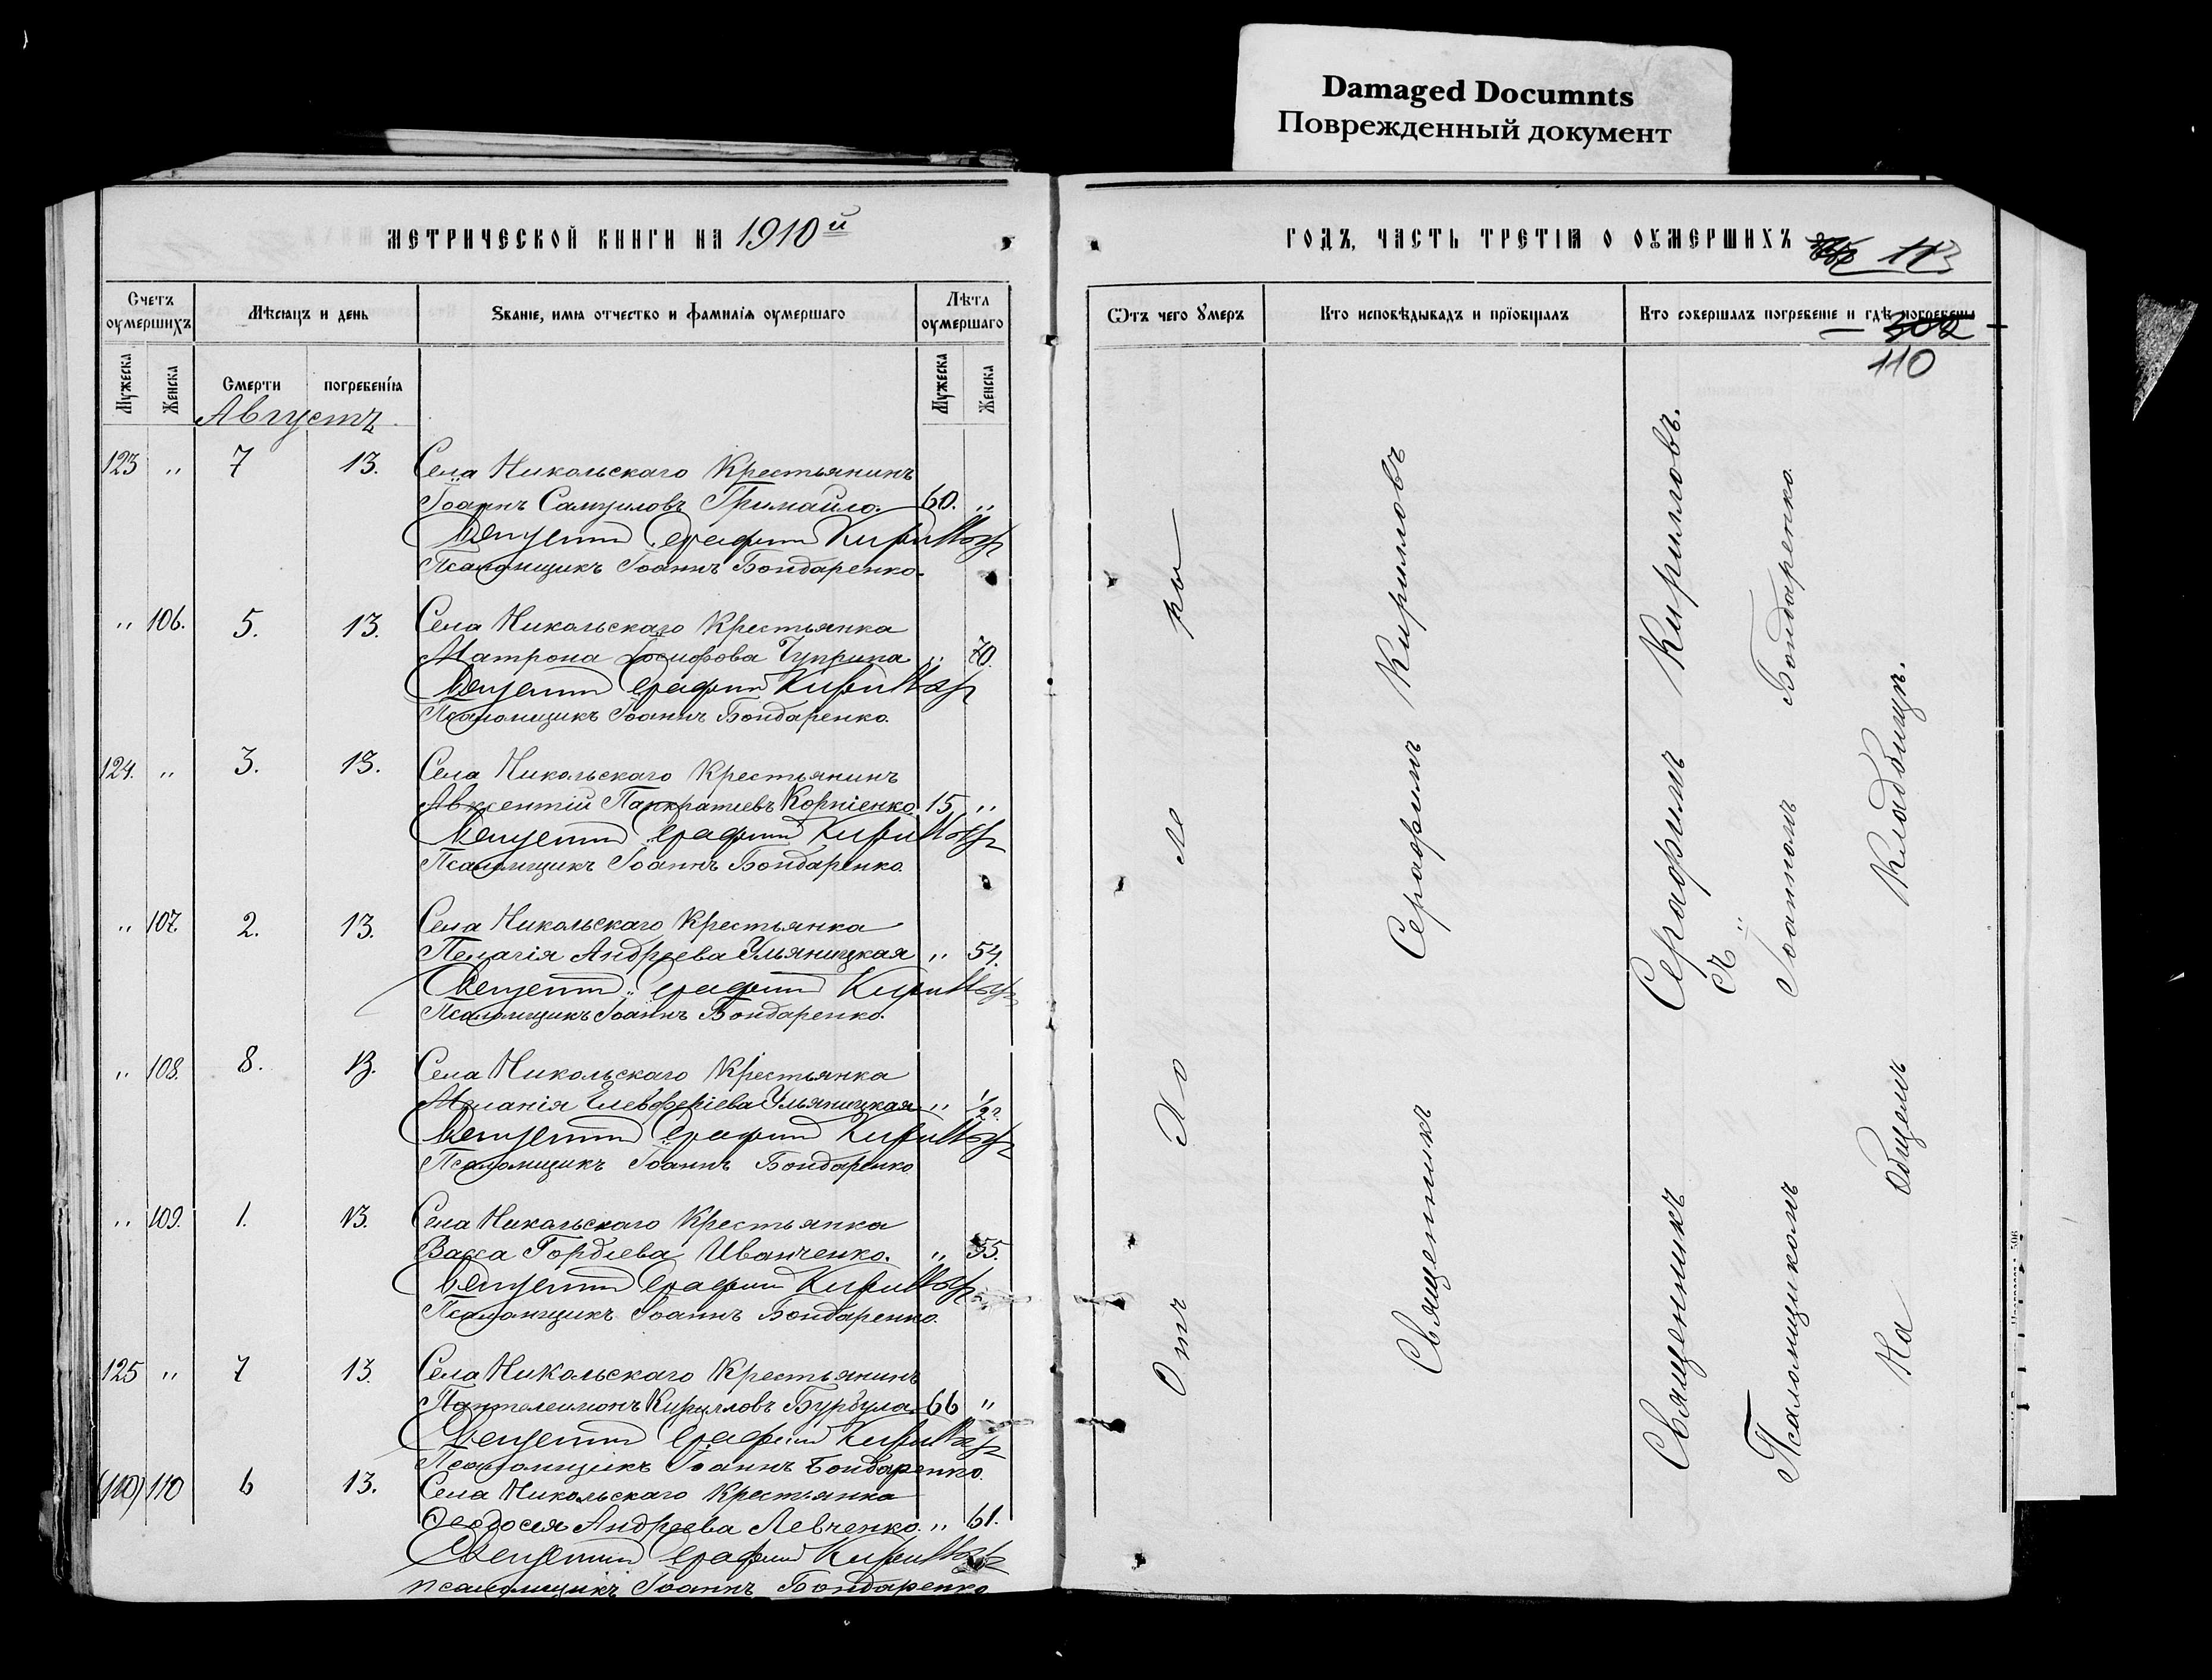 Damaged Documnts
Поврежденный документ
МЕТРИЧЕСКОЙ КНИГИ НА 1910й
ГОДЪ, ЧАСТЬ ТРЕТІЯ О ОУМЕРШИХЪ
113
Счетъ оумершихъ
Мѣсяцъ и день
Званіе, имя отчество и фамилія оумершаго
Лѣта оумершаго
Мужеска
Женска
Смерти
погребенія
Мужеска
Женска
Ѿтъ чего ѹмеръ
Кто исповѣдывалъ и пріобщалъ
Кто совершалъ погребеніе и гдѣ погребены
302
110
Августъ
123 " 7 13. Села Никольскаго Крестьянинъ
Іоаннъ Самуиловъ Гримайло. 60. "
Священникъ Серафимъ Кирилловъ
Псаломщикъ Іоаннъ Бондаренко.
" 106. 5. 13. Села Никольскаго Крестьянка
Матрона Іосифова Чуприна " 70.
Священникъ Серафимъ Кирилловъ
Псаломщикъ Іоаннъ Бондаренко.
124. " 3. 13. Села Никольскаго Крестьянинъ
Авксентій Панкратіевъ Корніенко. 15 "
Священникъ Серафимъ Кирилловъ
Псаломщикъ Іоаннъ Бондаренко.
" 107. 2. 13. Села Никольскаго Крестьянка
Пелагія Андреева Ульяницкая " 54.
Священникъ Серафимъ Кирилловъ
Псаломщикъ Іоаннъ Бондаренко.
" 108. 8. 13. Села Никольскаго Крестьянка
Меланія Елевферіева Ульяницкая " 1/2 г.
Священникъ Серафимъ Кирилловъ
Псаломщикъ Іоаннъ Бондаренко
" 109. 1. 13. Села Никольскаго Крестьянка
Васса Гордіева Иванченко. " 55.
Священникъ Серафимъ Кирилловъ
Псаломщикъ Іоаннъ Бондаренко.
125 " 7 13. Села Никольскаго Крестьянинъ
Пантелеимонъ Кирилловъ Бурбула. 66 "
Священникъ Серафимъ Кирилловъ
Псаломщикъ Іоаннъ Бондаренко.
(110) 110 6 13. Села Никольскаго Крестьянка
Ѳеодосія Андреева Левченко. " 61.
Священникъ Серафимъ Кирилловъ
псаломщикъ Іоаннъ Бондаренко
Отъ Хо ле ры
Священникъ Серафимъ Кирилловъ
Священникъ Серафимъ Кирилловъ.
съ
Псаломщикомъ Іоанномъ Бондаренко.
На Общемъ Кладбищѣ.